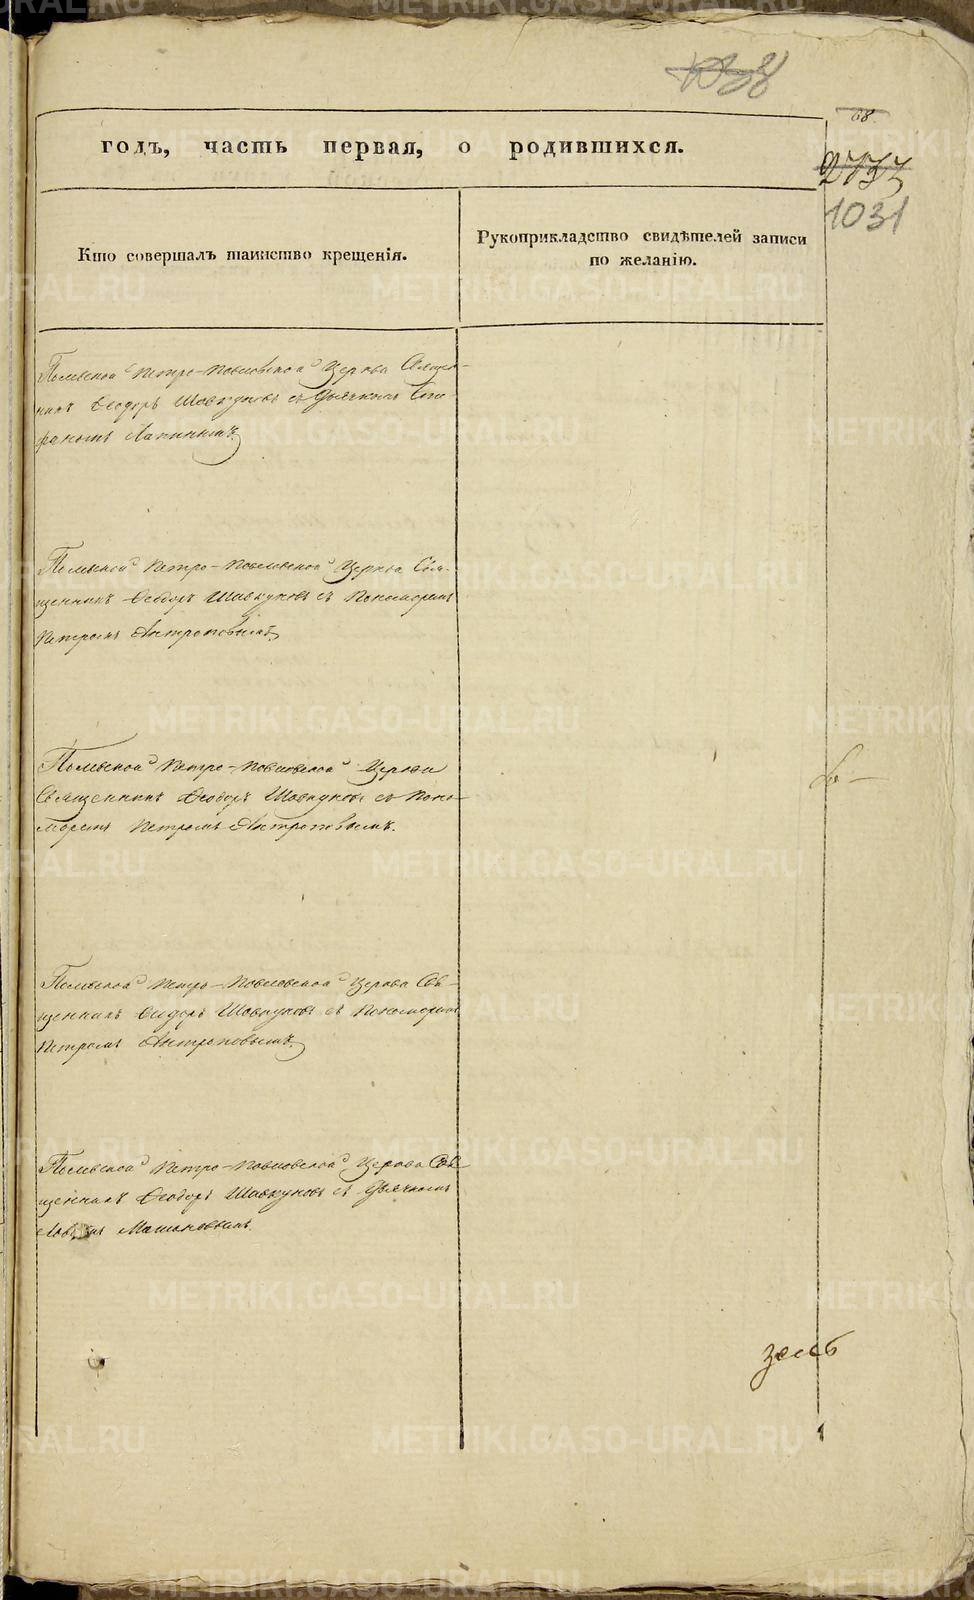 68
2737
1031
годъ, часть первая, о родившихся.
Кто совершалъ таинство крещенія.
Рукоприкладство свидѣтелей записи
по желанію.
Петро-Павловской Церкви Священ-
никъ Ѳеодоръ Шавкуновъ съ Дьячкомъ Сте-
фаномъ Лапинымъ.
Петро-Павловской Церкви Свя-
щенникъ Ѳеодоръ Шавкуновъ съ Пономаремъ
Петромъ Антроповымъ.
Петро-Павловской Церкви
Священникъ Ѳеодоръ Шавкуновъ съ Поно-
моремъ Петромъ Антроповымъ.
Петро-Павловской Церкви Свя-
щенникъ Ѳеодоръ Шавкуновъ съ Пономаремъ
Петромъ Антроповымъ.
Петро-Павловской Церкви Свя-
щенникъ Ѳеодоръ Шавкуновъ съ Дьячкомъ
METRIKI.GASO-URAL.RU